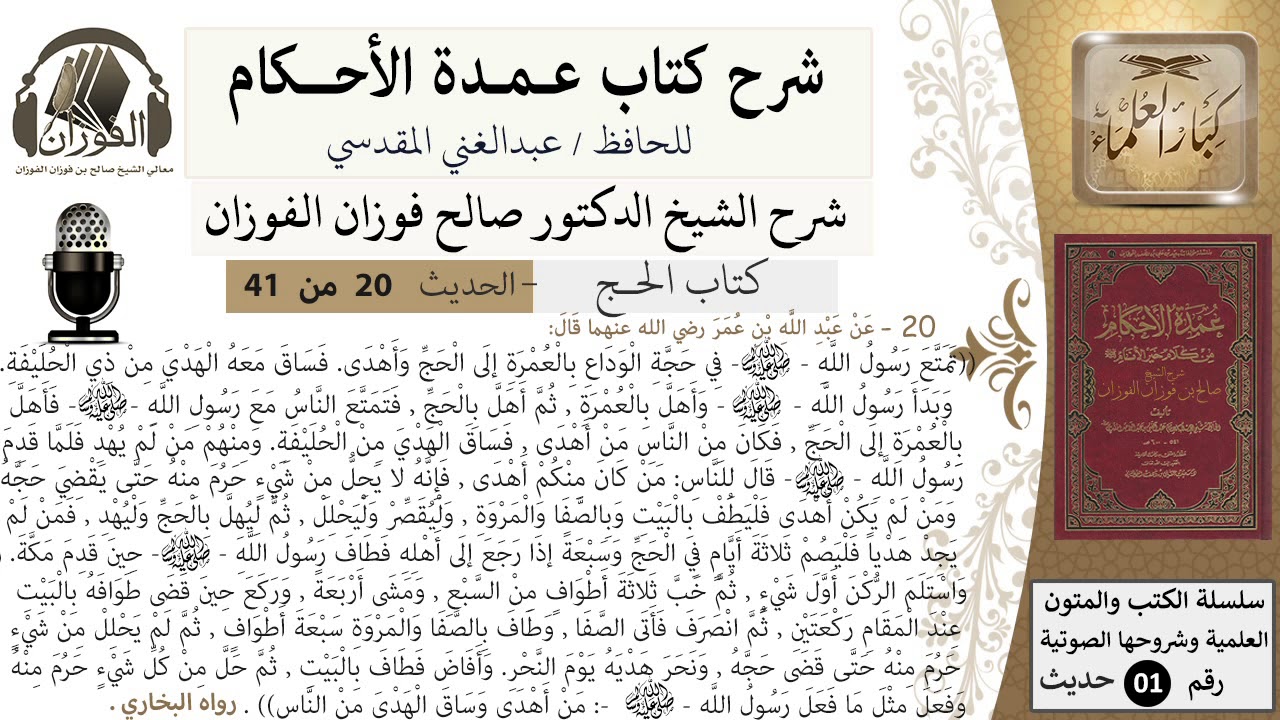 شرح كتاب عمدة الأحكام
للحافظ / عبدالغني المقدسي
شرح الشيخ الدكتور صالح فوزان الفوزان
كتاب الحج - الحديث 20 من 41
الفوزان
معالي الشيخ صالح بن فوزان الفوزان
كبار العلماء
عمدة الأحكام
من كلام خير الأنام ﷺ
شرح الشيخ
صالح بن فوزان الفوزان
تأليف
20 - عَنْ عَبْدِ اللَّهِ بْنِ عُمَرَ رضي الله عنهما قَالَ:
((تَمَتَّعَ رَسُولُ اللَّهِ - ﷺ - في حَجَّةِ الْوَدَاعِ بِالْعُمْرَةِ إلى الْحَجِّ وَأَهْدَى. فَسَاقَ مَعَهُ الْهَدْيَ مِنْ ذِي الْحُلَيْفَةِ.
وَبَدَأَ رَسُولُ اللَّهِ - ﷺ - وَأَهَلَّ بِالْعُمْرَةِ , ثُمَّ أَهَلَّ بِالْحَجِّ , فَتَمَتَّعَ النَّاسُ مَعَ رَسُولِ اللَّهِ - ﷺ - فَأَهَلَّ
بِالْعُمْرَةِ إلَى الْحَجِّ , فَكَانَ مِنْ النَّاسِ مَنْ أَهْدَى , فَسَاقَ الْهَدْيَ مِن الْحُلَيْفَةِ. وَمِنْهُمْ مَنْ لَمْ يُهْدِ فَلَمَّا قَدِمَ
رَسُولُ اللَّهِ - ﷺ - قَالَ لِلنَّاسِ: مَنْ كَانَ مِنْكُمْ أَهْدَى , فَإِنَّهُ لا يَحِلُّ مِنْ شَيْءٍ حَرُمَ مِنْهُ حَتَّى يَقْضِيَ حَجَّهُ
وَمَنْ لَمْ يَكُنْ أَهْدَى فَلْيَطُفْ بِالْبَيْتِ وَبِالصَّفَا وَالْمَرْوَةِ , وَلْيُقَصِّرْ وَلْيَحْلِلْ , ثُمَّ لْيُهِلَّ بِالْحَجِّ وَلْيُهْدِ , فَمَنْ لَمْ
يَجِدْ هَدْياً فَلْيَصُمْ ثَلاثَةَ أَيَّامٍ فِي الْحَجِّ وَسَبْعَةً إذَا رَجَعَ إلَى أَهْلِهِ فَطَافَ رَسُولُ اللَّهِ - ﷺ - حِينَ قَدِمَ مَكَّةَ.
وَاسْتَلَمَ الرُّكْنَ أَوَّلَ شَيْءٍ , ثُمَّ خَبَّ ثَلاثَةَ أَطْوَافٍ مِنْ السَّبْعِ , وَمَشَى أَرْبَعَةً , وَرَكَعَ حِينَ قَضَى طَوَافَهُ بِالْبَيْتِ
عِنْدَ الْمَقَامِ رَكْعَتَيْنِ , ثُمَّ انْصَرَفَ فَأَتَى الصَّفَا , وَطَافَ بِالصَّفَا وَالْمَرْوَةِ سَبْعَةَ أَطْوَافٍ , ثُمَّ لَمْ يَحْلِلْ مِنْ شَيْءٍ
حَرُمَ مِنْهُ حَتَّى قَضَى حَجَّهُ , وَنَحَرَ هَدْيَهُ يَوْمَ النَّحْرِ. وَأَفَاضَ فَطَافَ بِالْبَيْتِ , ثُمَّ حَلَّ مِنْ كُلِّ شَيْءٍ حَرُمَ مِنْهُ
وَفَعَلَ مِثْلَ مَا فَعَلَ رَسُولُ اللَّهِ - ﷺ -: مَنْ أَهْدَى وَسَاقَ الْهَدْيَ مِنْ النَّاسِ)) . رواه البخاري .
سلسلة الكتب والمتون
العلمية وشروحها الصوتية
رقم 01 حديث